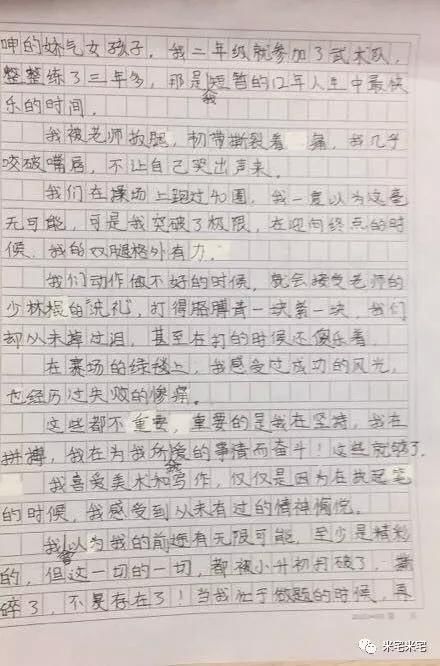 呻的娇气女孩子。我二年级就参加了武术队，
整整练了三年多，那是我短暂的12年人生中最快
乐的时间。
我被老师扳腿，韧带撕裂着痛，我几乎
咬破嘴唇，不让自己哭出声来。
我们在操场上跑过40圈，我一度以为这毫
无可能，可是我突破了极限，在迎向终点的时
候，我的双腿格外有力。
我们动作做不好的时候，就会接受老师的
少林棍的“洗礼”，打得胳膊青一块紫一块，我们
却从未掉过泪，甚至在打的时候还傻乐着。
在赛场的绿毯上，我感受过成功的风光，
也经历过失败的惨痛。
这些都不重要，重要的是我在坚持，我在
拼搏，我在为我所爱的事情而奋斗！这些就够了。
我喜爱美术和写作，仅仅是因为在我起笔
的时候，我感受到从未有过的精神愉悦。
我以为我的前途有无限可能，至少是精彩
的，但这一切的一切，都被小升初打破了，撕
碎了，不复存在了！当我忙于做题的时候，再
米宅米宅